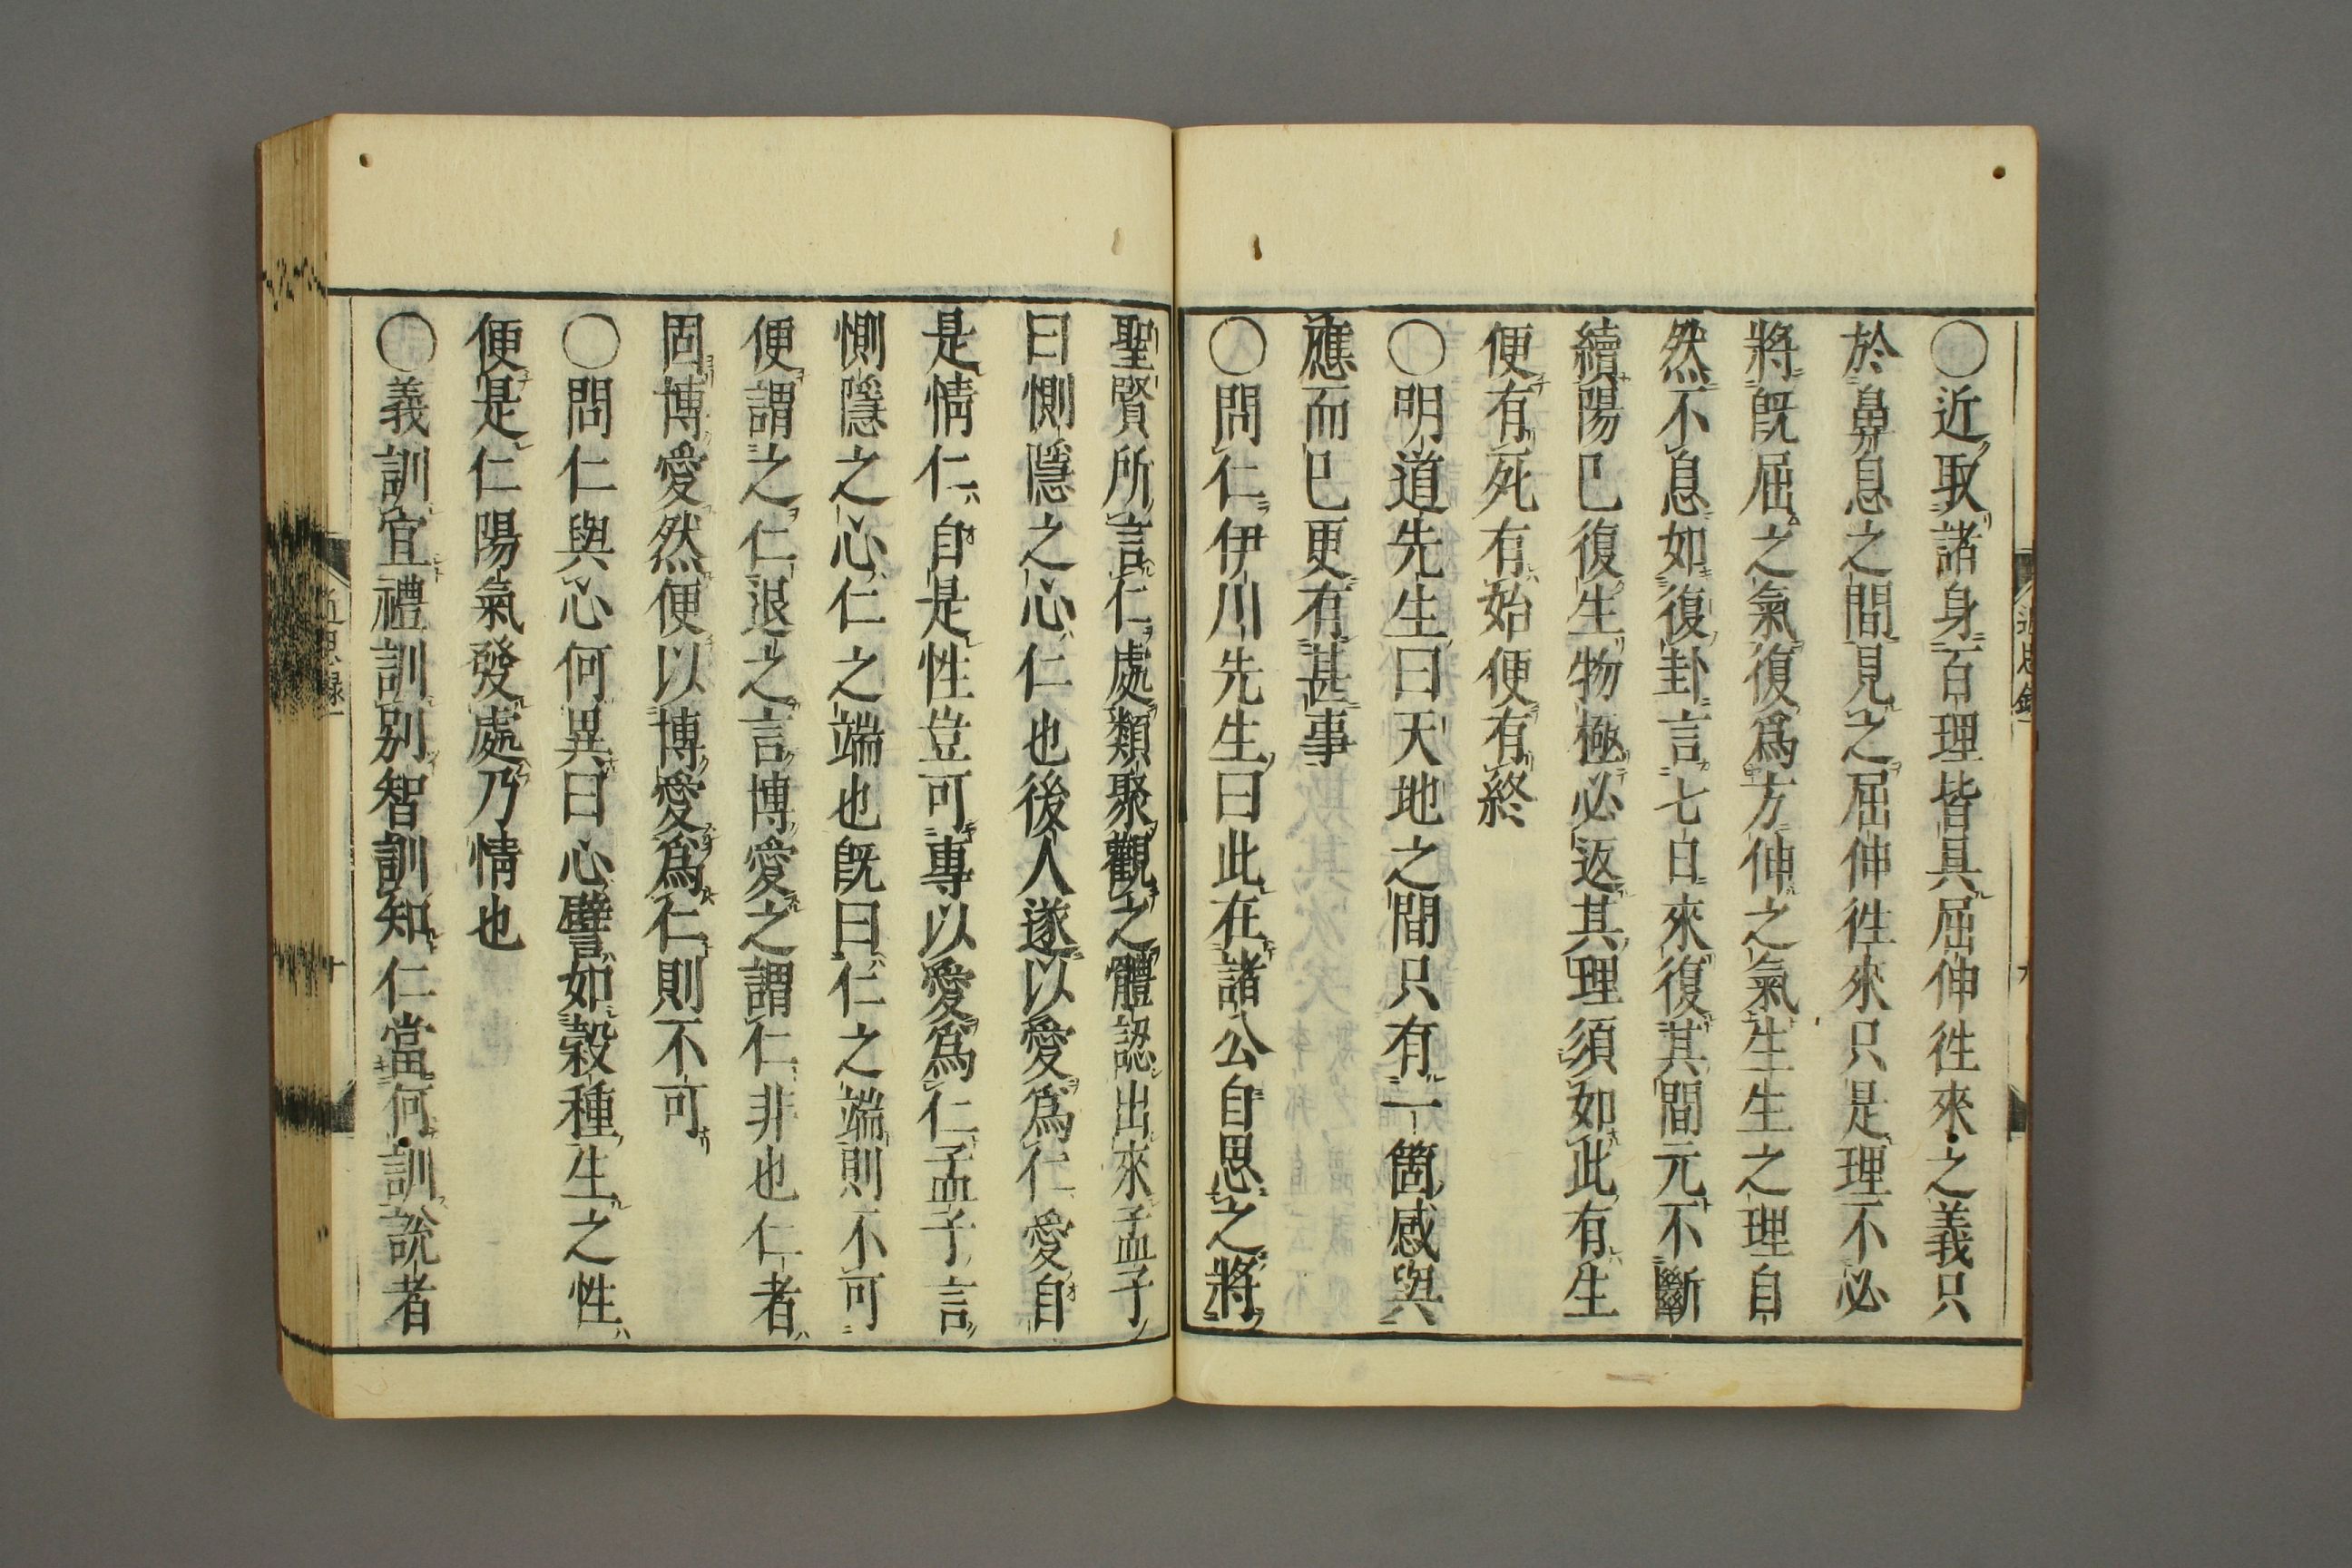 〇近取諸身百理皆具屈伸徃來之義只
於鼻息之間見之屈伸徃來只是理不必
將既屈之氣復爲方伸之氣生生之理自
然不息如復卦言七日來復其間元不斷
續陽已復生物極必返其理須如此有生
便有死有始便有終
〇明道先生曰天地之間只有一箇感與
應而已更有甚事
〇問仁伊川先生曰此在諸公自思之將
聖賢所言仁處類聚觀之體認出來孟子
曰惻隱之心仁也後人遂以愛爲仁愛自
是情仁自是性豈可專以愛爲仁孟子言
惻隱之心仁之端也既曰仁之端則不可
便謂之仁退之言博愛之謂仁非也仁者
固博愛然便以博愛爲仁則不可
〇問仁與心何異曰心譬如穀種生之性
便是仁陽氣發處乃情也
〇義訓宜禮訓別智訓知仁當何訓說者
近思錄